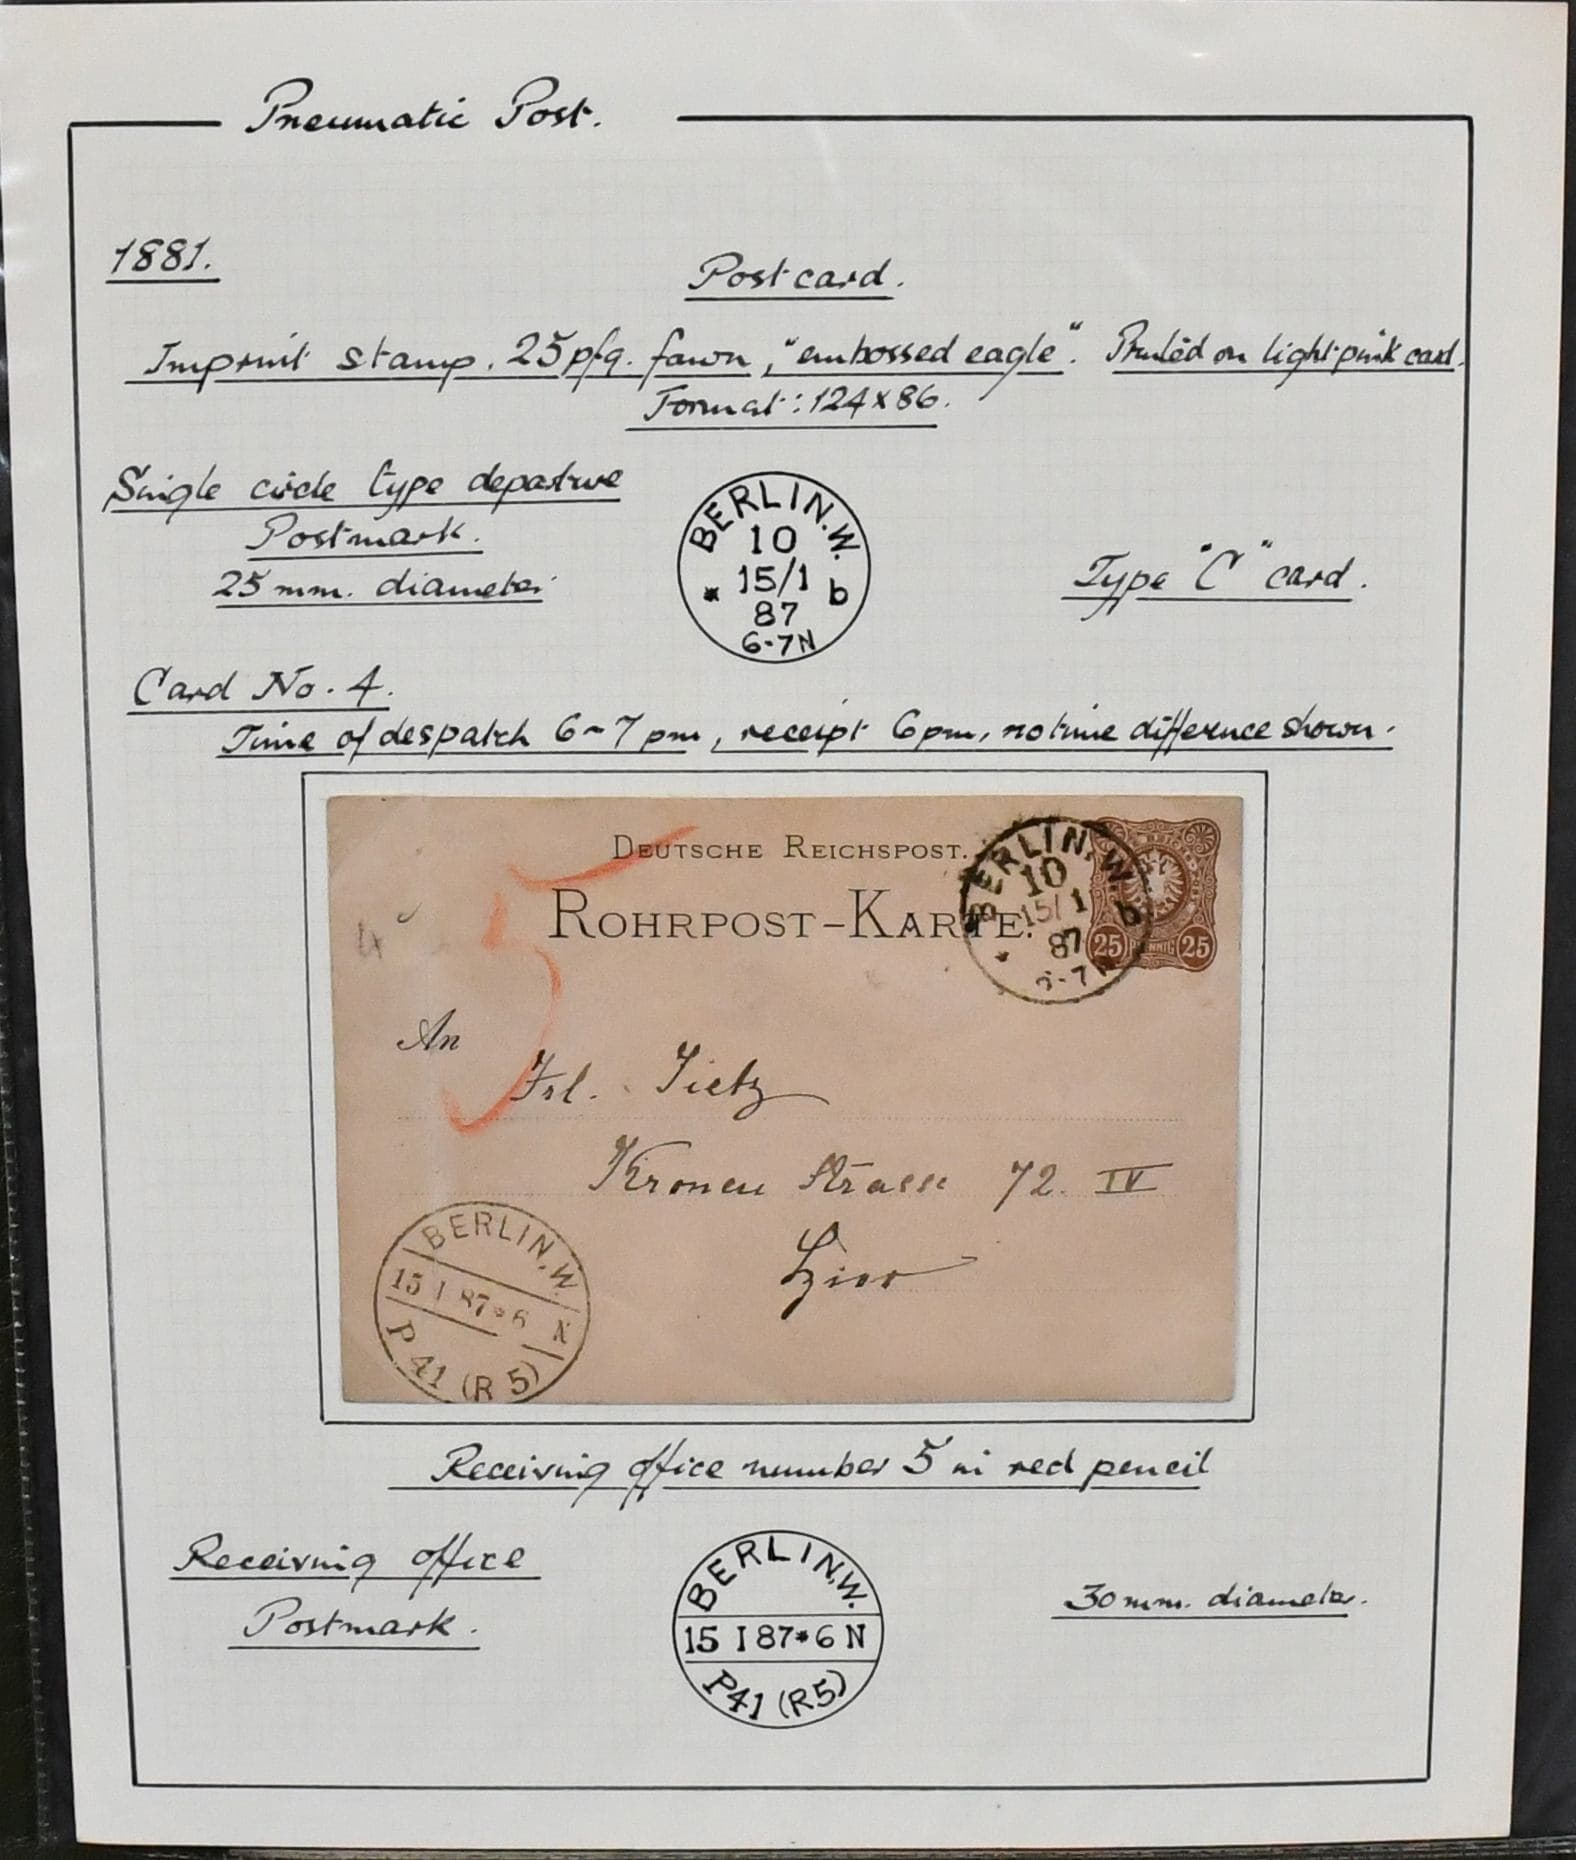 Pneumatic Post.
1881.
Postcard.
Imprint stamp. 25pfg. fawn, "embossed eagle". Printed on light pink card.
Format: 124x86.
Single circle type departure
Postmark.
25 mm. diameter.
BERLIN.W.
10
15/1
* b
87
6-7N
Type "C" card.
Card No. 4.
Time of despatch 6-7pm, receipt 6pm, no time difference shown.
DEUTSCHE REICHSPOST.
ROHRPOST-KARTE.
BERLIN.W.
10
15/1
* b
87
6-7N
25 PFENNIG 25
5
4
An
Frl. Tietz
Kronen Strasse 72. IV
Hier
BERLIN.W.
15 I 87*6 N
P 41 (R 5)
Receiving office number 5 in red pencil
Receiving office
Postmark.
BERLIN.W.
15 I 87*6 N
P41 (R5)
30 mm. diameter.